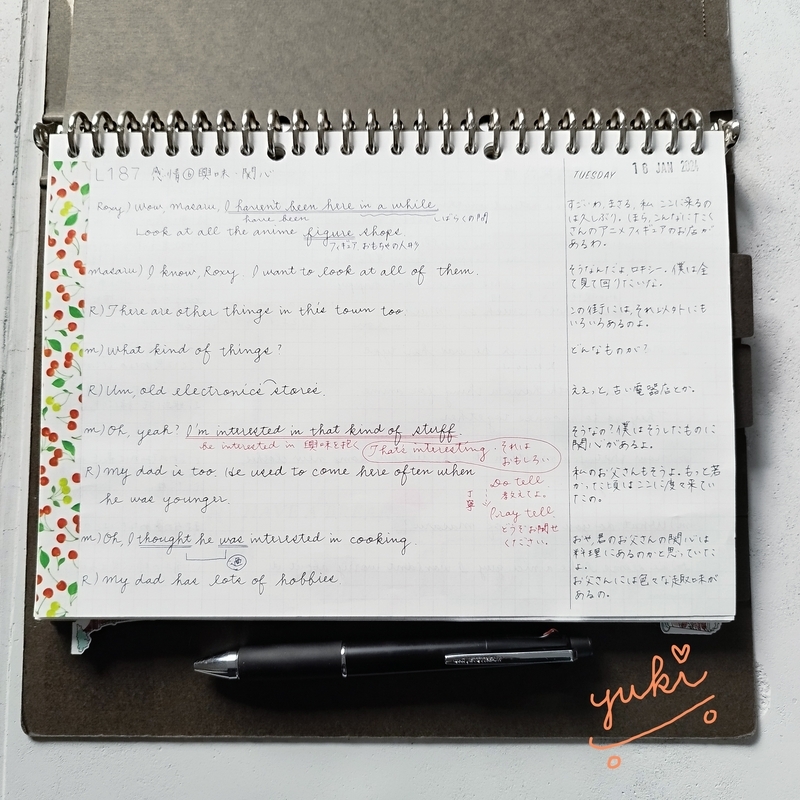 L187 感情④興味・関心
TUESDAY 16 JAN 2024
Roxy) Wow, Masaru, I haven't been here in a while
have been しばらくの間
Look at all the anime figure shops
フィギュア おもちゃの人形
すごいわ、まさる、私 ここに来るの
は久しぶり。ほら、こんなにたく
さんのアニメフィギュアのお店が
あるわ。
Masaru) I know, Roxy. I want to look at all of them.
そうなんだよ ロキシー。僕は全
て見て回りたいな。
R) There are other things in this town too
この街には、それ以外にも
いろいろあるのよ。
M) What kind of things?
どんなものが?
R) Um, old electronics stores.
ええっと、古い電器店とか。
M) Oh, yeah? I'm interested in that kind of stuff
be interested in 興味を抱く
That's interesting. それは
おもしろい
そうなの?僕はそうしたものに
関心があるよ。
R) My dad is too. He used to come here often when
he was younger.
Do tell
教えてよ。
丁寧
Pray tell
どうぞお聞せ
ください。
私のお父さんもそうよ。もっと若
かったころはここに度々来てい
たの。
M) Oh, I thought he was interested in cooking.
おや、君のお父さんの関心は
料理にあるのかと思っていた
よ。
R) My dad has lots of hobbies
お父さんには色々な趣味が
あるの。
yuki